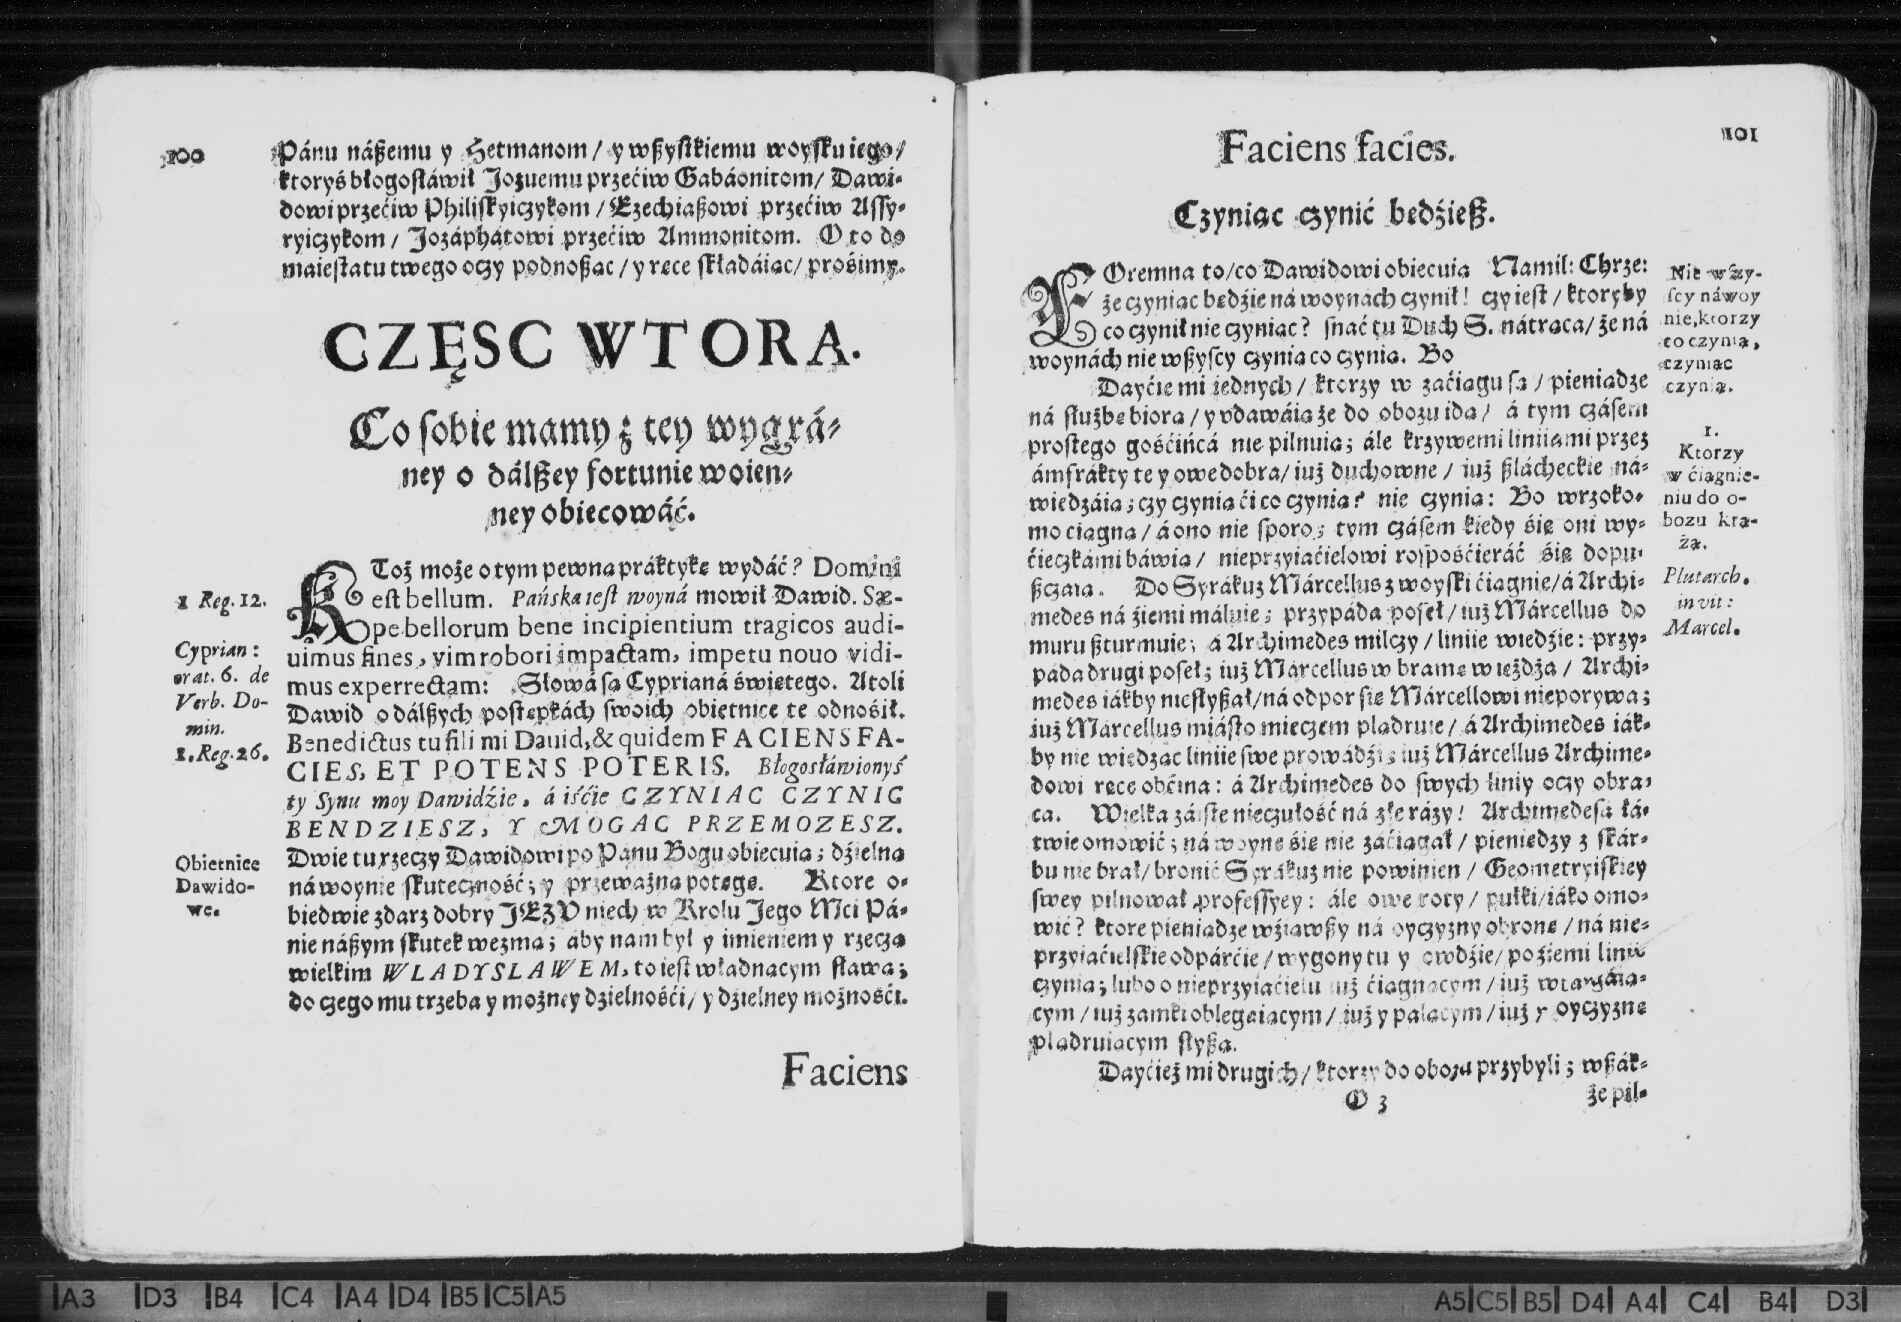 100
Pánu nászemu y Hetmanom / y wszystkiemu woysku iego /
ktoryś błogosłáwił Jozuemu przećiw Gabáonitom / Dawi-
dowi przećiw Philiskyiczykom / Ezechiaszowi przećiw Assy-
ryiczykom / Jozáphatowi przećiw Ammonitom. O to do
maiestatu twego oczy podnosząc / y ręce składáiąc / prośimy.
CZĘSC WTORA.
Co sobie mamy z tey wygrá-
ney o dálszey fortunie woien-
ney obiecowáć.
KToż może o tym pewną práktykę wydáć? Domini
est bellum. Pańska iest woyná mowił Dawid. Sæ-
pe bellorum bene incipientium tragicos audi-
uimus fines, vim robori impactam, impetu nouo vidi-
mus experrectam: Słowá są Cyprianá świętego. Atoli
Dawid o dálszych postępkách swoich obietnice te odnośił.
Benedictus tu fili mi Dauid, & quidem FACIENS FA-
CIES, ET POTENS POTERIS. Błogosłáwionyś
ty Synu moy Dawidźie, á iśćie CZYNIAC CZYNIC
BENDZIESZ, Y MOGAC PRZEMOZESZ.
Dwie tu rzeczy Dawidowi po Panu Bogu obiecuią; dźielną
ná woynie skuteczność; y przeważną potęgę. Ktore o-
biedwie zdarz dobry JEZU niech w Krolu Jego Mci Pá-
nie nászym skutek wezmą; aby nam był y imieniem y rzeczą
wielkim WLADYSLAWEM, to iest władnącym sławą;
do czego mu trzeba y możney dzielnośći / y dźielney możnośći.
Faciens
1 Reg. 12.
Cyprian:
orat. 6. de
Verb. Do-
min.
1. Reg. 26.
Obietnice
Dawido-
we.
101
Faciens facies.
Czyniąc czynić będźiesz.
FOremna to / co Dawidowi obiecuią Namil: Chrze:
że czyniąc będźie ná woynach czynił! czy iest / ktoryby
co czynił nie czyniąc? snać tu Duch S. nátrąca / że ná
woynách nie wszyscy czynią co czynią. Bo
Dayćie mi iednych / ktorzy w zaćiągu są / pieniądze
ná służbę biorą / y vdawáią że do obozu idą / á tym czásem
prostego gośćińcá nie pilnuią; ále krzywemi liniiami przez
ámfrákty te y owe dobra / iuż duchowne / iuż szlácheckie ná-
wiedzáią; czy czynią ći co czynią? nie czynią: Bo wrzoko-
mo ciągną / á ono nie sporo; tym czásem kiedy się oni wy-
ćieczkámi báwią / nieprzyiaćielowi rospośćieráć się dopu-
szczáią. Do Syrákuz Márcellus z woyski ćiągnie / á Archi-
medes ná źiemi máluie; przypáda poseł / iuż Márcellus do
muru szturmuie; á Archimedes milczy / liniie wiedźie: przy-
páda drugi poseł; iuż Márcellus w bramę wieżdża / Archi-
medes iákby niesłyszał / ná odpor się Márcellowi nieporywa;
iuż Márcellus miásto mieczem pladruie / á Archimedes iák-
by nie wiedząc liniie swe prowádźi; iuż Márcellus Archime-
dowi ręce obćina: á Archimedes do swych liniy oczy obra-
ca. Wielka záiste nieczułość ná złe rázy! Archimedesa łá-
twie omowić; ná woynę się nie záćiągał / pieniędzy z skár-
bu nie brał / bronić Syrákuz nie powinien / Geometryiskiey
swey pilnował professyey: ále owe roty / pułki / iáko omo-
wić? ktore pieniądze wźiąwszy ná oyczyzny obronę / ná nie-
przyiaćielskie odpárćie / wygony tu y owdźie / po źiemi linii
czynią; lubo o nieprzyiaćielu iuż ćiągnącym / iuż wtargáią-
cym / iuż zamki oblegáiącym / iuż y palącym / iuż y oyczyznę
plądruiącym słyszą.
Dayćież mi drugich / ktorzy do obozu przybyli; wszák-
O 3
że pil-
Nie wszy-
scy ná woy
nie, ktorzy
co czynią,
czyniąc
czynią.
1.
Ktorzy
w ćiągnie-
niu do o-
bozu krą-
żą.
Plutarch.
in vit:
Marcel.
A3 D3 B4 C4 A4 D4 B5 C5 A5
A5 C5 B5 D4 A4 C4 B4 D3